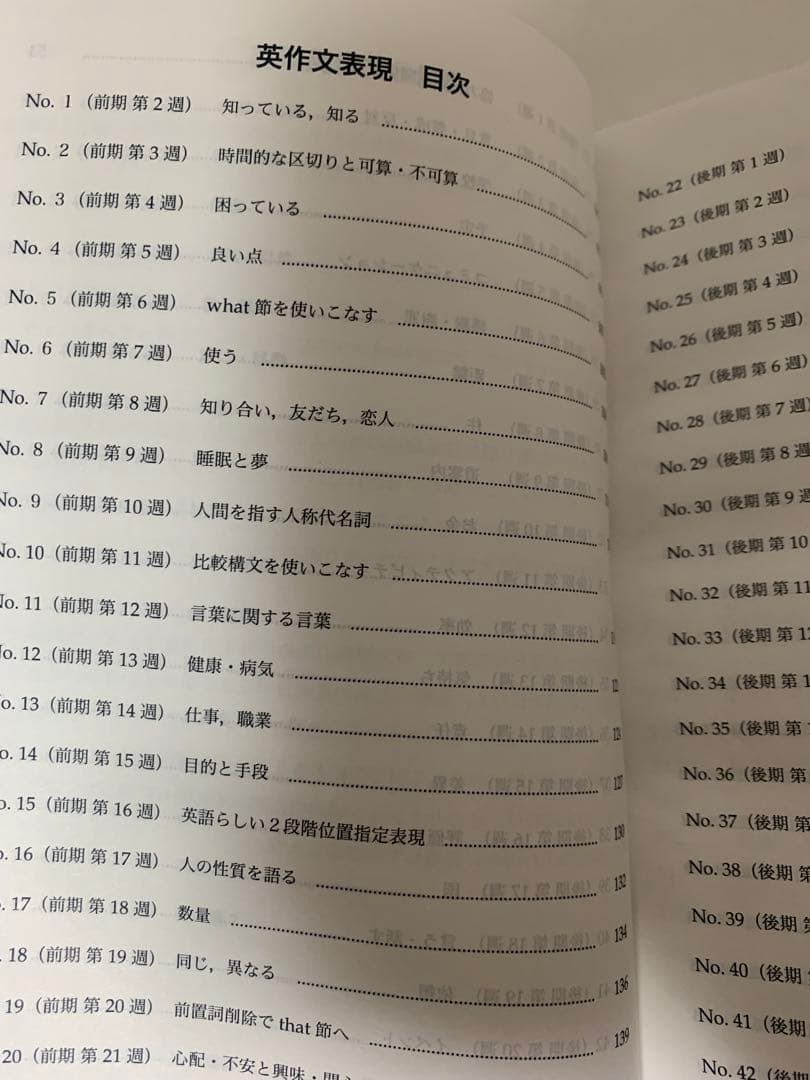 英作文表現 目次
No. 1 (前期 第2週) 知っている，知る
No. 2 (前期 第3週) 時間的な区切りと可算・不可算
No. 3 (前期 第4週) 困っている
No. 4 (前期 第5週) 良い点
No. 5 (前期 第6週) what 節を使いこなす
No. 6 (前期 第7週) 使う
No. 7 (前期 第8週) 知り合い，友だち，恋人
No. 8 (前期 第9週) 睡眠と夢
No. 9 (前期 第10週) 人間を指す人称代名詞
No. 10 (前期 第11週) 比較構文を使いこなす
No. 11 (前期 第12週) 言葉に関する言葉
No. 12 (前期 第13週) 健康・病気
No. 13 (前期 第14週) 仕事，職業 123
No. 14 (前期 第15週) 目的と手段 127
o. 15 (前期 第16週) 英語らしい2段階位置指定表現 130
o. 16 (前期 第17週) 人の性質を語る 132
. 17 (前期 第18週) 数量 134
. 18 (前期 第19週) 同じ，異なる 136
19 (前期 第20週) 前置詞削除で that 節へ 139
20 (前期 第21週) 心配・不安と興味・関
No. 22 (後期 第1週)
No. 23 (後期 第2週)
No. 24 (後期 第3週)
No. 25 (後期 第4週)
No. 26 (後期 第5週)
No. 27 (後期 第6週)
No. 28 (後期 第7週)
No. 29 (後期 第8週
No. 30 (後期 第9週
No. 31 (後期 第10
No. 32 (後期 第11
No. 33 (後期 第12
No. 34 (後期 第1
No. 35 (後期 第
No. 36 (後期 第
No. 37 (後期 第
No. 38 (後期 第
No. 39 (後期 第
No. 40 (後期 第
No. 41 (後期 第
No. 42 (後期 第